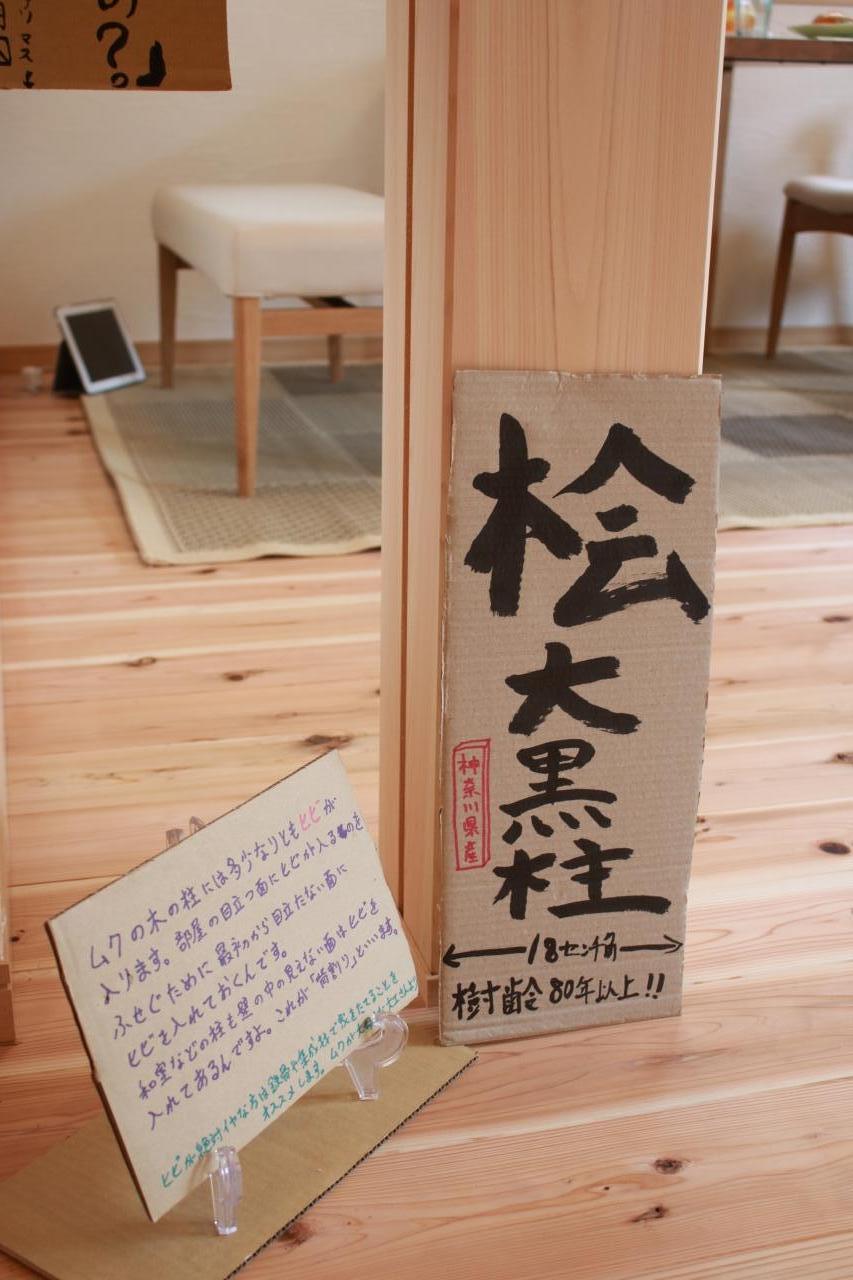 の?。」
マス
桧
大黒柱
神奈川県産
18センチ角
樹齢80年以上!!
ムクの木の柱には多少なりともヒビが
入ります。部屋の目立つ面にヒビが入るのを
ふせぐために最初から目立たない面に
ヒビを入れておくんです。
和室などの柱も壁の中の見えない面はヒビを
入れてあるんですよ。これが「背割り」といいます。
ヒビが絶対イヤな方は鉄骨や集成柱で家をたてることを
オススメします。ムクが